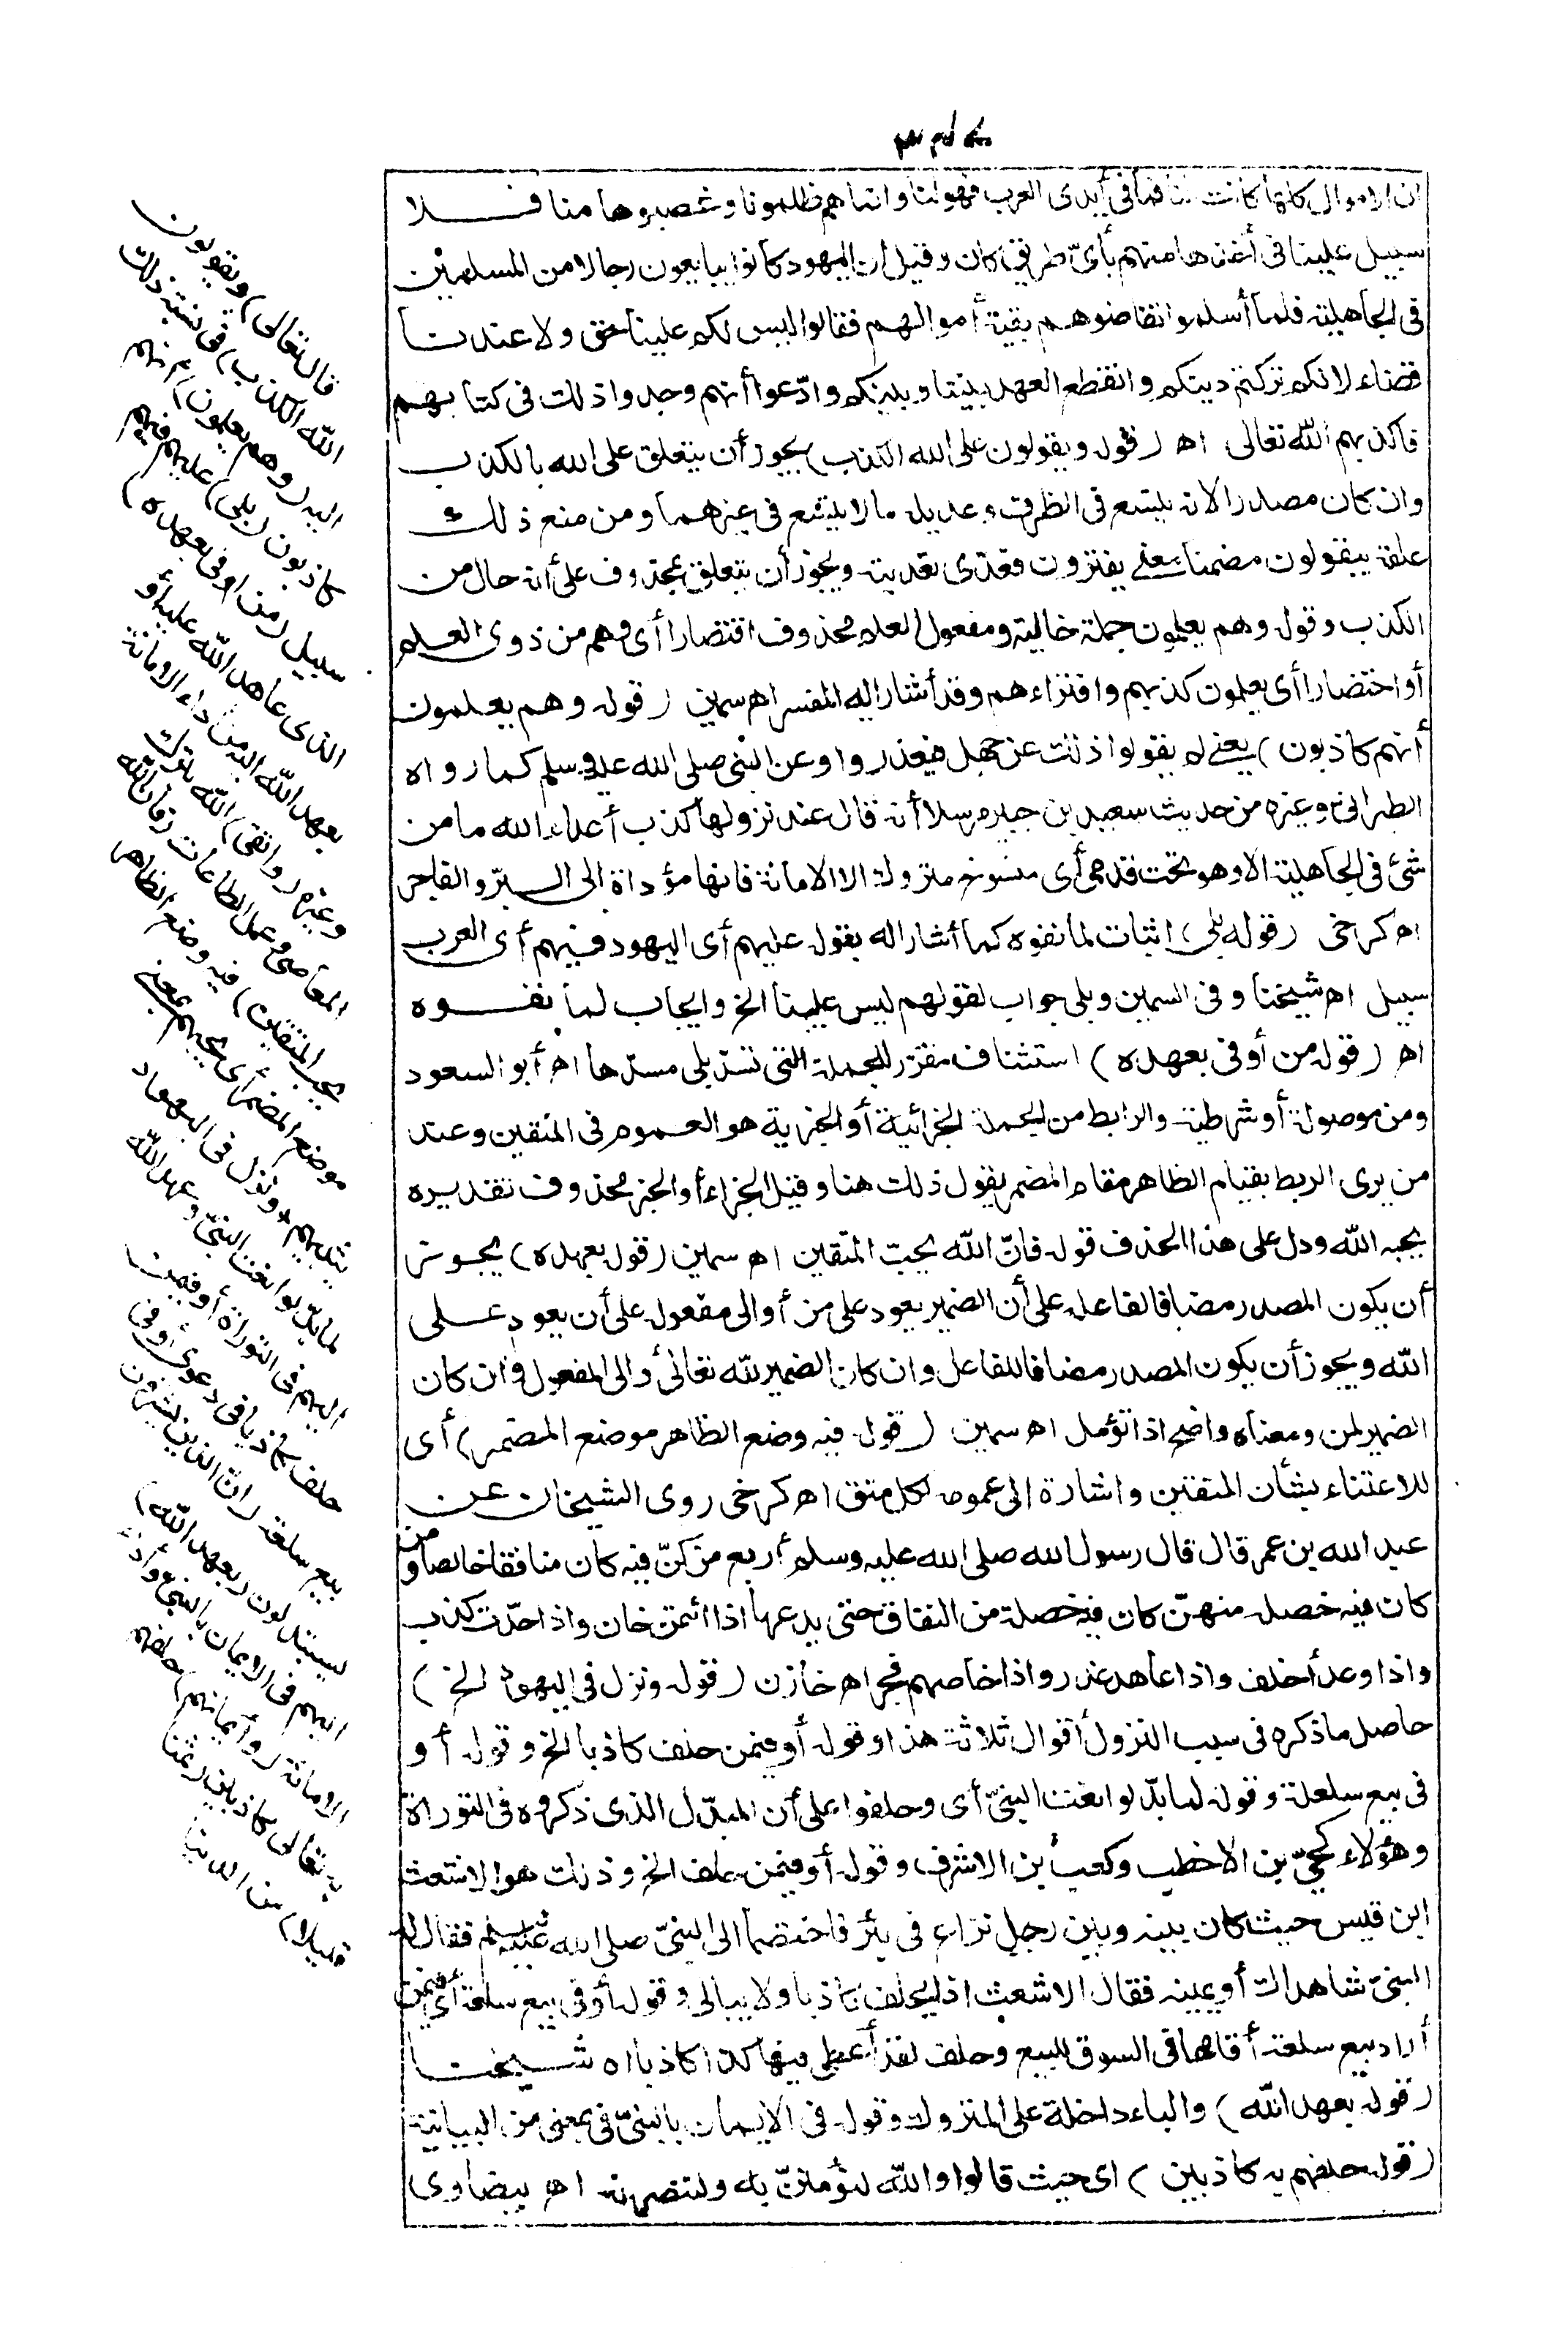 ان الاموال كلها كانت لنا فما فى أيدى العرب فهو لنا وانما هم ظلمونا وغصبوها منا فلا
سبيل علينا فى أخذها منهم بأىّ طريق كان وقيل ان اليهود كانوا يبايعون رجالا من المسلمين
فى الجاهلية فلما أسلموا تقاضوهم بقية أموالهم فقالوا ليس لكم علينا حق ولا عندنا
قضاء لانكم تركتم دينكم وانقطع العهد بيننا وبينكم وادّعوا أنهم وجدوا ذلك فى كتابهم
فاكذبهم الله تعالى اه (قوله ويقولون على الله الكذب) يجوز أن يتعلق على الله بالكذب
وان كان مصدرا لانه يتسع فى الظرف وعديله ما لا يتسع فى غيرهما ومن منع ذلك
علقه بيقولون مضمنا معنى يفترون فعدّى تعديته ويجوز أن يتعلق بمحذوف على أنه حال من
الكذب وقوله وهم يعلمون جملة حالية ومفعول العلم محذوف اقتصارا أى وهم من ذوى العلم
أو اختصارا أى يعلمون كذبهم وافتراءهم وقد أشار اليه المفسر اه سمين (قوله وهم يعلمون
أنهم كاذبون) يعنى لم يقولوا ذلك عن جهل فيعذروا وعن النبى صلى الله عليه وسلم كما رواه
الطبرانى وغيره من حديث سعيد بن جبير مرسلا أنه قال عند نزولها كذب أعداء الله ما من
شئ فى الجاهلية الا وهو تحت قدمى أى منسوخ متروك الا الامانة فانها مؤداة الى البرّ والفاجر
اه كرخى (قوله بلى) اثبات لما نفوه كما أشار اليه بقوله عليهم أى اليهود فيهم أى العرب
سبيل اه شيخنا وفى السمين وبلى جواب لقولهم ليس علينا الخ وايجاب لما نفوه
اه (قوله من أوفى بعهده) استئناف مقرّر للجملة التى تسدّ بلى مسدّها اه أبو السعود
ومن موصولة أو شرطية والرابط من الجملة الجزائية أو الخبرية هو العموم فى المتقين وعند
من يرى الربط بقيام الظاهر مقام المضمر يقول ذلك هنا وقيل الجزاء أو الخبر محذوف تقديره
يحبه الله ودل على هذا الحذف قوله فانّ الله يحبّ المتقين اه سمين (قوله بعهده) يجوز
أن يكون المصدر مضافا لفاعله على أن الضمير يعود على من أو الى مفعوله على أن يعود على
الله ويجوز أن يكون المصدر مضافا للفاعل وان كان الضمير لله تعالى أو الى المفعول وان كان
الضمير لمن ومعناه واضح اذا تؤمل اه سمين (قوله فيه وضع الظاهر موضع المضمر) أى
للاعتناء بشأن المتقين واشارة الى عمومه لكل متق اه كرخى روى الشيخان عن
عبد الله بن عمر قال قال رسول الله صلى الله عليه وسلم أربع من كنّ فيه كان منافقا خالصا ومن
كان فيه خصلة منهنّ كان فيه خصلة من النفاق حتى يدعها اذا ائتمن خان واذا حدّث كذب
واذا وعد أخلف واذا عاهد غدر واذا خاصم فجر اه خازن (قوله ونزل فى اليهود الخ)
حاصل ما ذكره فى سبب النزول أقوال ثلاثة هذا وقوله أو فيمن حلف كاذبا الخ وقوله أو
فى بيع سلعة وقوله لما بدّلوا نعت النبىّ أى وحلفوا على أن المبدّل الذى ذكروه فى التوراة
وهؤلاء كحيىّ بن الاخطب وكعب بن الاشرف وقوله أو فيمن حلف الخ وذلك هو الاشعث
ابن قيس حيث كان بينه وبين رجل نزاع فى بئر فاختصما الى النبىّ صلى الله عليه وسلم فقال له
النبىّ شاهداك أو يمينه فقال الاشعث اذا يحلف كاذبا ولا يبالى وقوله أو فى بيع سلعة أى فيمن
أراد بيع سلعة أقامها فى السوق للبيع وحلف لقد أعطى فيها كذا كاذبا اه شيخنا
(قوله بعهد الله) والباء داخلة على المتروك وقوله فى الايمان بالنبىّ فى بمعنى من البيانية
(قوله حلفهم به كاذبين) اى حيث قالوا والله لنؤمننّ به ولننصرنه اه بيضاوى
قال تعالى (ويقولون
الله الكذب) فى نسبة ذلك
اليه (وهم يعلمون) أنهم
كاذبون (بلى) عليهم فيهم
سبيل (من اوفى بعهده)
الذى عاهد الله عليه أو
بعهد الله اليه من أداء الامانة
وغيره (واتقى) الله بترك
المعاصى وعمل الطاعات (فان الله
يحب المتقين) فيه وضع الظاهر
موضع المضمر أى يحبهم بمعنى
يثيبهم * ونزل فى اليهود
لما بدلوا نعت النبىّ وعهد الله
اليهم فى التوراة أو فيمن
حلف كاذبا فى دعوى أو فى
بيع سلعة (ان الذين يشترون)
يستبدلون (بعهد الله)
اليهم فى الايمان بالنبى وأداء
الامانة (وأيمانهم) حلفهم
به تعالى كاذبين (ثمنا
قليلا) من الدنيا